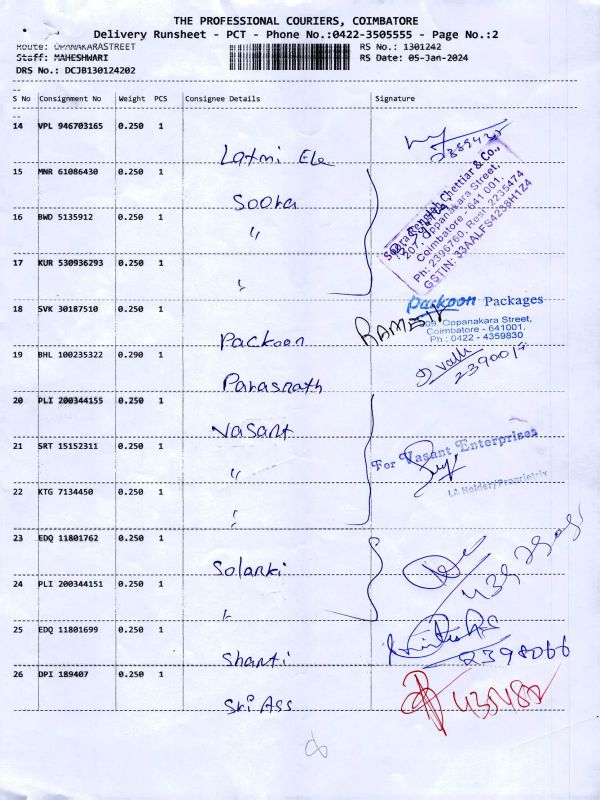 THE PROFESSIONAL COURIERS, COIMBATORE
Delivery Runsheet - PCT - Phone No.:0422-3505555 - Page No.:2
Route: OPANAKARASTREET RS No.: 1301242
Staff: MAHESHWARI RS Date: 05-Jan-2024
DRS No.: DCJB130124202
S No Consignment No Weight PCS Consignee Details Signature
14 VPL 946703165 0.250 1
Laxmi Ele
15 MNR 61086430 0.250 1
Soora
16 BWD 5135912 0.250 1
"
Chettiar & Co.,
207, Oppanakara Street,
Coimbatore - 641 001.
Ph: 2396760, Resi: 2235474
GSTIN: 33AALFS4238H1Z4
17 KUR 530936293 0.250 1
"
18 SVK 30187510 0.250 1
Packoon
RAMESH
Packoon Packages
309, Oppanakara Street,
Coimbatore - 641001.
Ph : 0422 - 4359830
19 BHL 100235322 0.290 1
Parasnath
20 PLI 200344155 0.250 1
Vasant
21 SRT 15152311 0.250 1
"
For Vasant Enterprises
Holder/Proprietrix
22 KTG 7134450 0.250 1
"
23 EDQ 11801762 0.250 1
Solanki
24 PLI 200344151 0.250 1
"
25 EDQ 11801699 0.250 1
Shanti
2398066
26 DPI 189407 0.250 1
Sri Ass